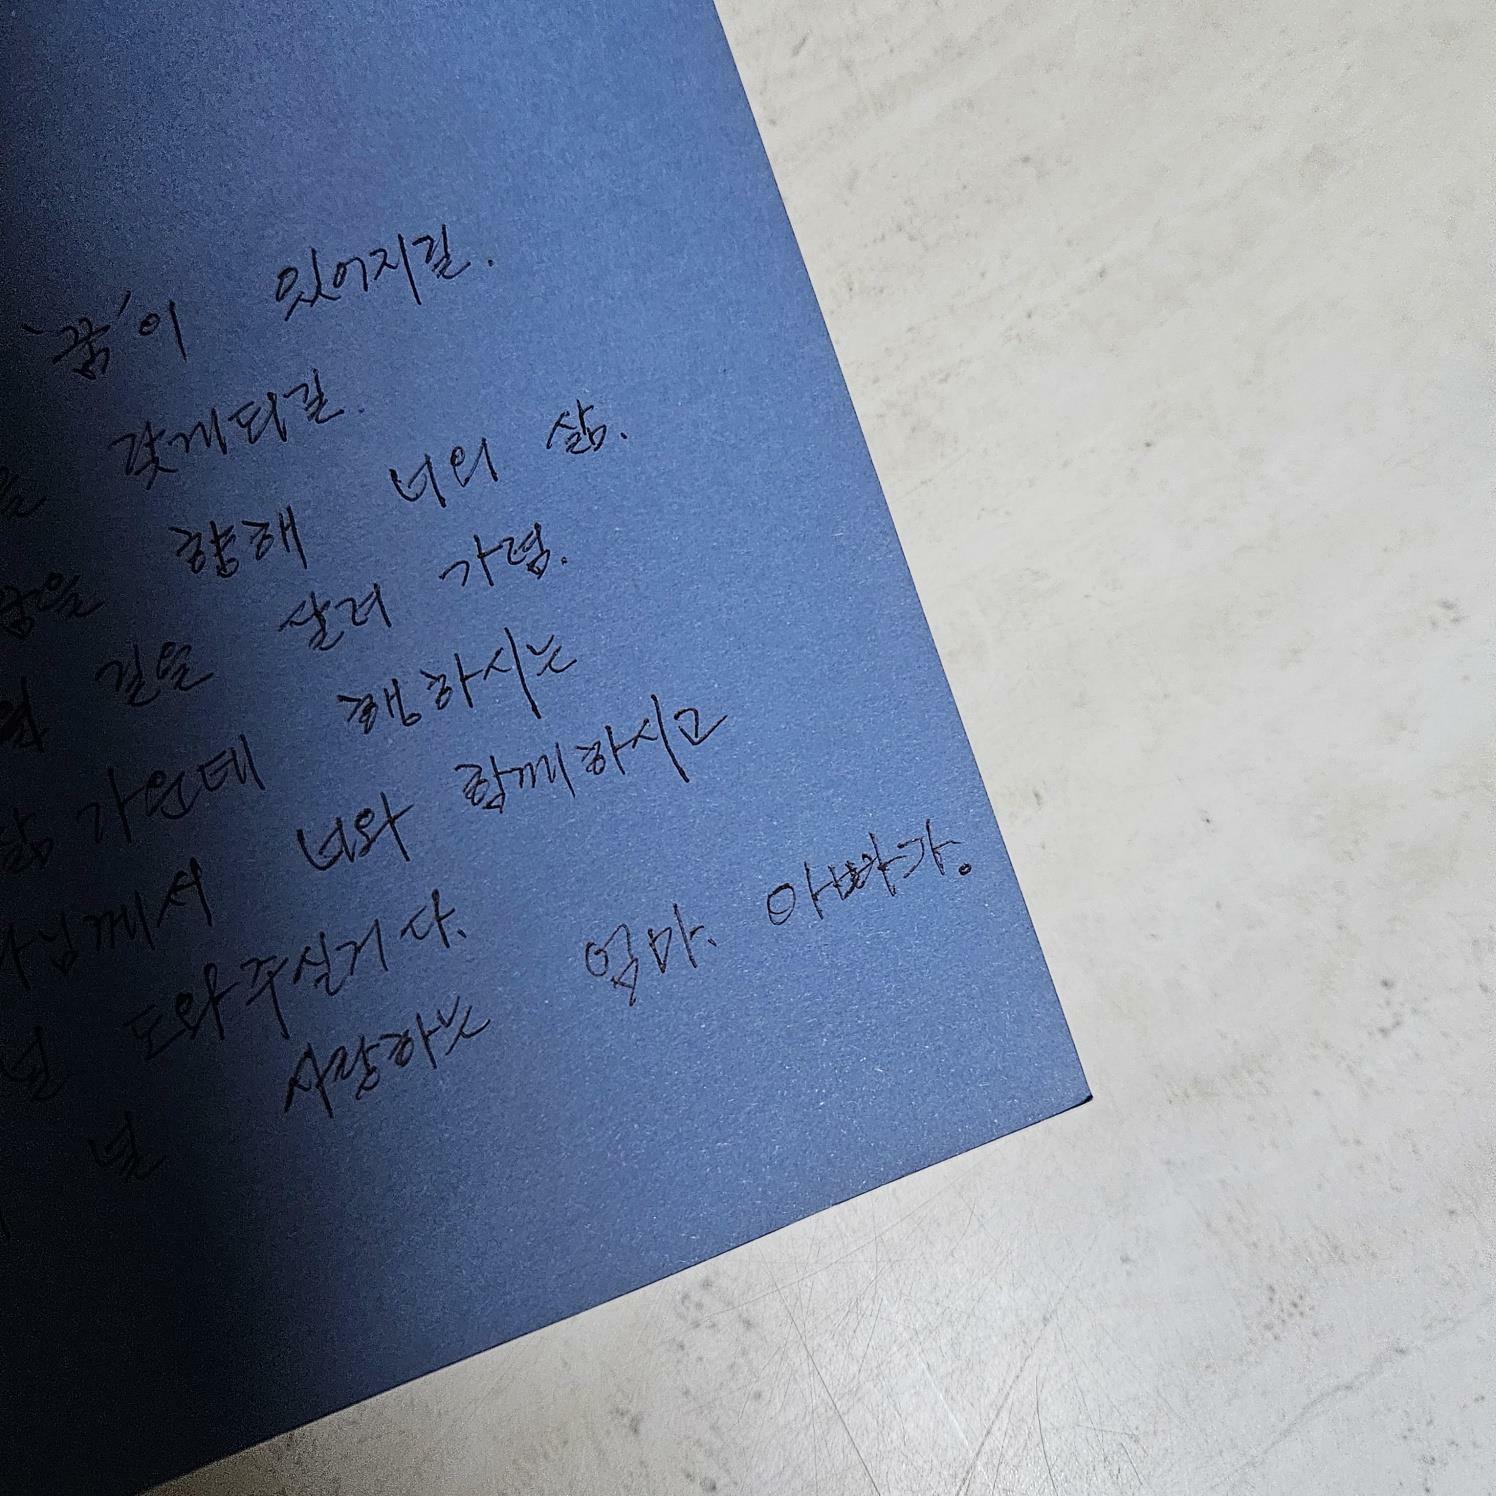 '꿈'이 있어지길.
갖게되길.
꿈을 향해 너의 삶.
길을 달려 가렴.
삶 가운데 행하시는
께서 너와 함께하시고
널 도와주실거다.
널 사랑하는 엄마. 아빠가.